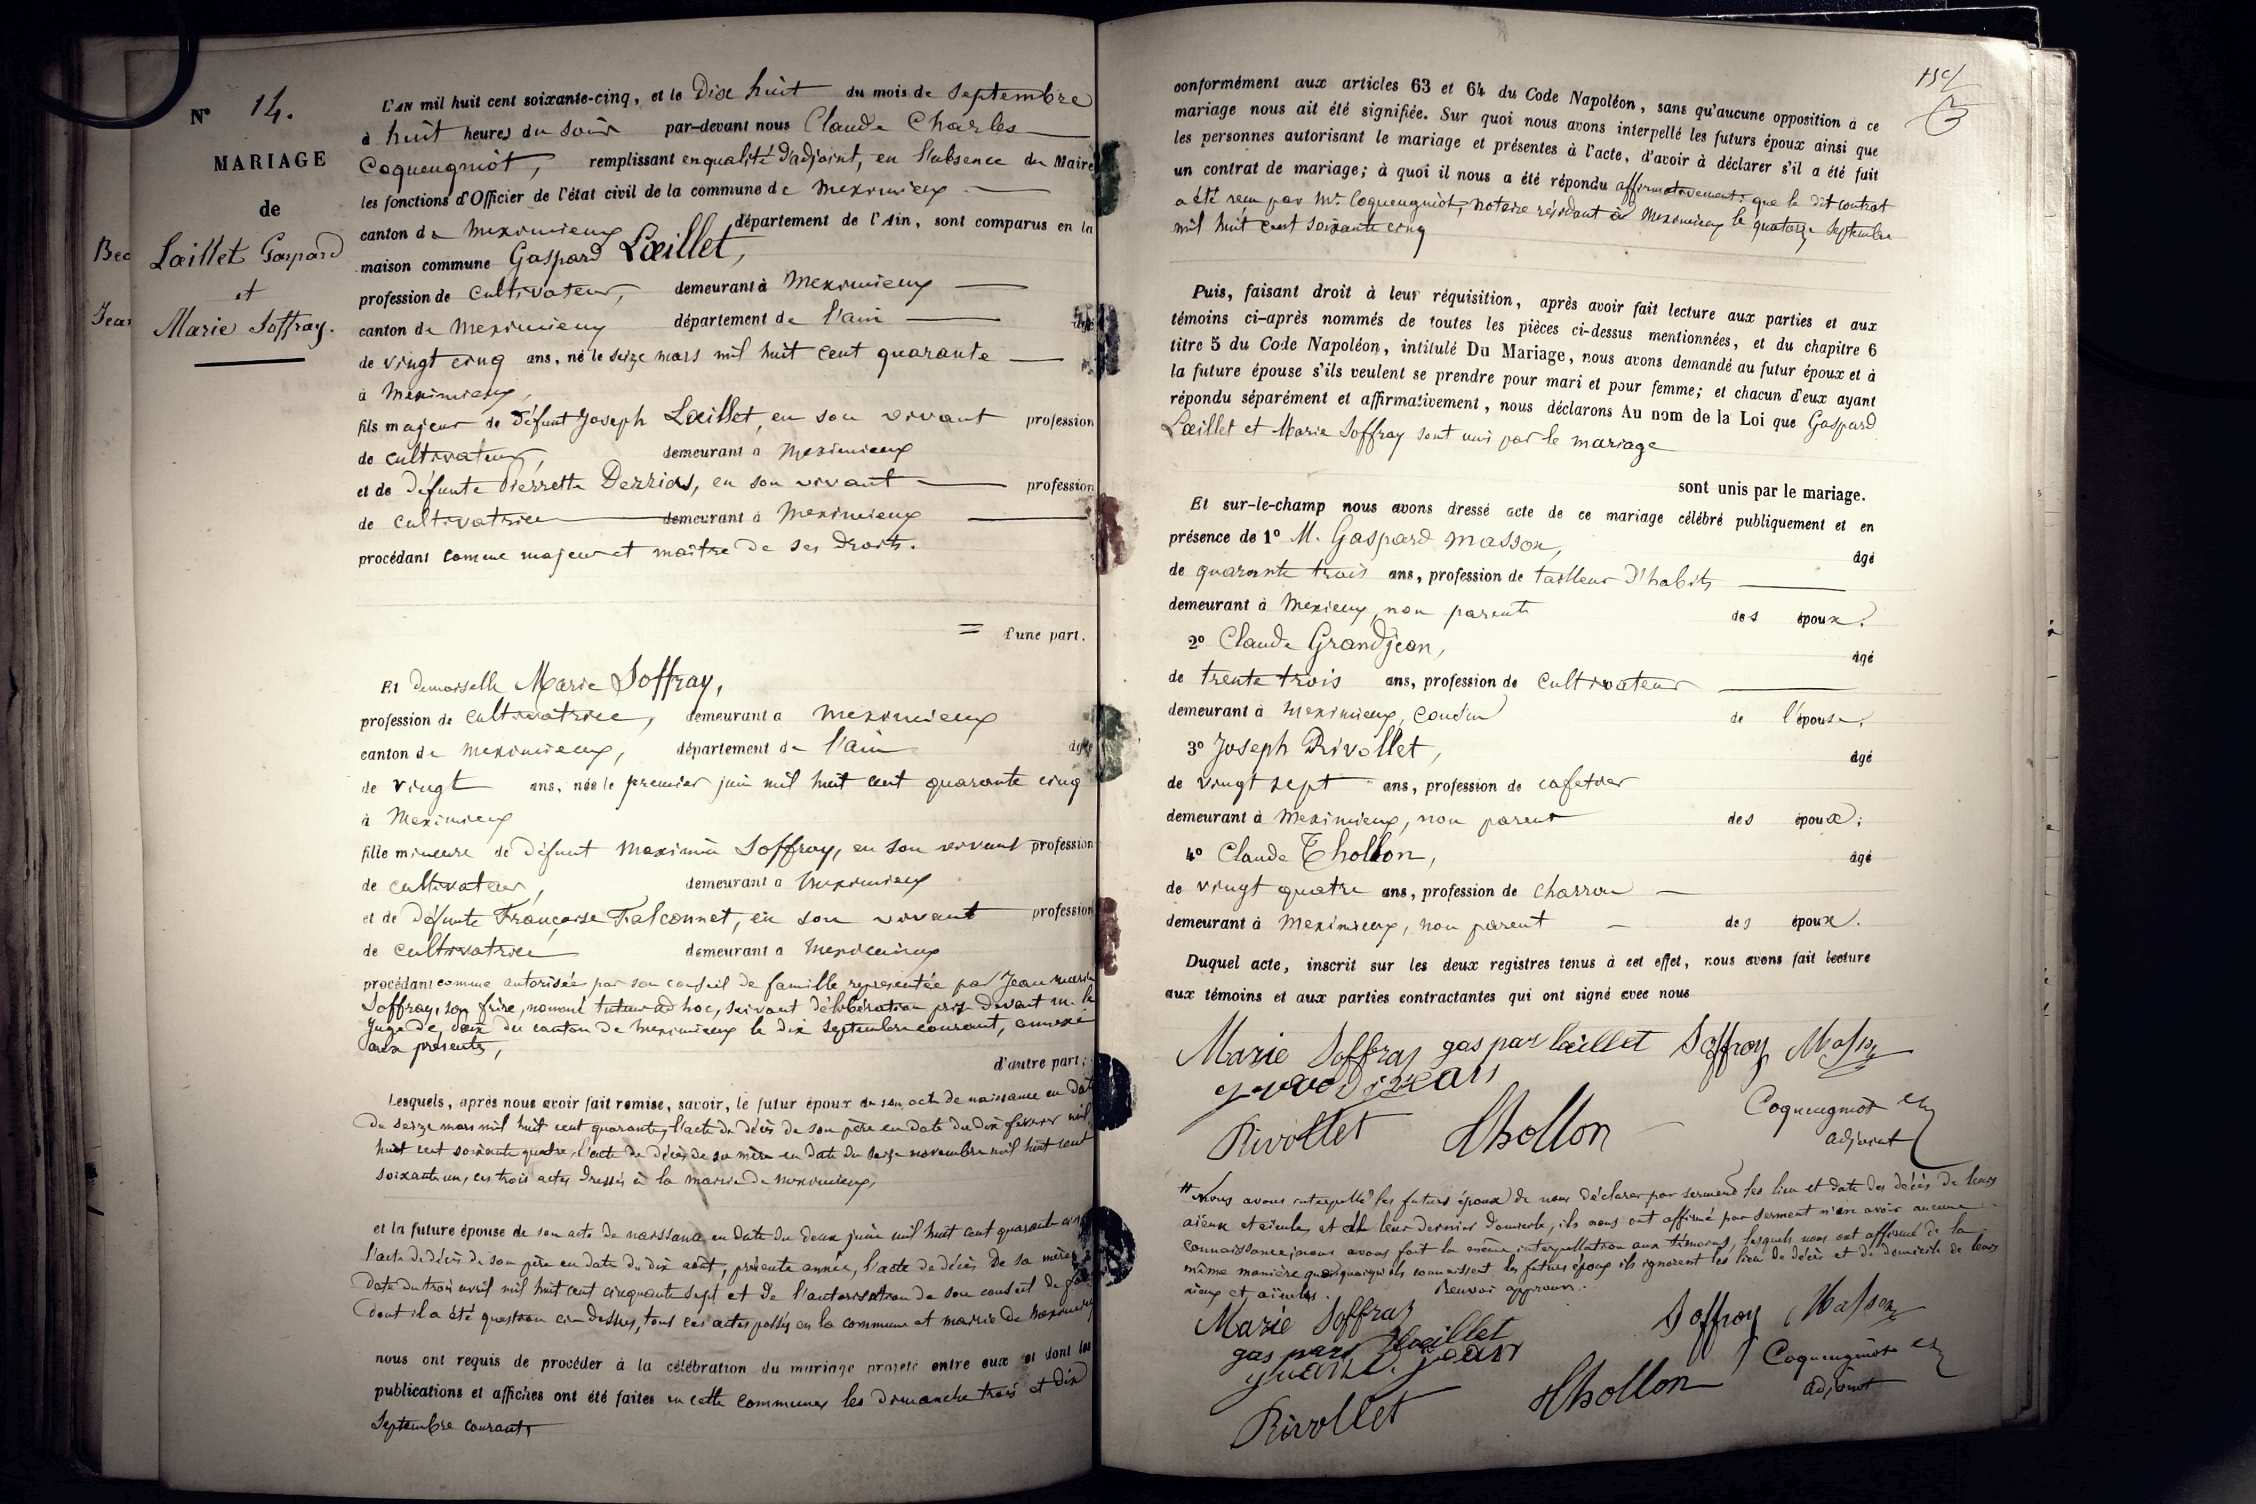 N° 14.
MARIAGE
de
Lœillet Gaspard
et
Marie Soffray.
Bec
Jear
L'AN mil huit cent soixante-cinq, et le Dix huit du mois de septembre
à huit heures du soir par-devant nous Claude Charles
Coqueugniot, remplissant en qualité d'adjoint, en l'absence du Maire
les fonctions d'Officier de l'état civil de la commune de Meximieux
canton de Meximieux département de l'Ain, sont comparus en la
maison commune Gaspard Lœillet,
profession de cultivateur, demeurant à Meximieux
canton de Meximieux département de l'ain âgé
de vingt cinq ans, né le seize mars mil huit cent quarante
à Meximieux,
fils majeur de défunt Joseph Lœillet, en son vivant profession
de cultivateur, demeurant à Meximieux
et de défunte Pierrette Derrias, en son vivant profession
de cultivatrice demeurant à Meximieux
procédant comme majeur et maître de ses droits.
= d'une part.
Et demoiselle Marie Soffray,
profession de cultivatrice, demeurant à Meximieux
canton de Meximieux, département de l'ain âgée
de vingt ans, née le premier juin mil huit cent quarante cinq
à Meximieux
fille mineure de défunt Maximin Soffray, en son vivant profession
de cultivateur, demeurant à Meximieux
et de défunte Françoise Falconnet, en son vivant profession
de cultivatrice demeurant à Meximieux
procédant comme autorisée par son conseil de famille représentée par Jean marie
Soffray, son frère, nommé tuteur ad hoc, suivant délibération prise devant m. le
Juge de paix du canton de Meximieux le dix septembre courant, annexé
aux présentes,
d'autre part;
Lesquels, après nous avoir fait remise, savoir, le futur époux de son acte de naissance en date
du seize mars mil huit cent quarante, l'acte de décès de son père en date du dix février mil
huit cent soixante quatre, l'acte de décès de sa mère en date du seize novembre mil huit cent
soixante un, ces trois actes dressés à la mairie de Meximieux,
et la future épouse de son acte de naissance en date du deux juin mil huit cent quarante cinq
l'acte de décès de son père en date du dix août, présente année, l'acte de décès de sa mère
date du trois avril mil huit cent cinquante sept et de l'autorisation de son conseil de
dont il a été question ci-dessus, tous ces actes passés en la commune et mairie de Meximieux
nous ont requis de procéder à la célébration du mariage projeté entre eux et dont les
publications et affiches ont été faites en cette commune les dimanche trois et dix
Septembre courant
conformément aux articles 63 et 64 du Code Napoléon, sans qu'aucune opposition à ce
mariage nous ait été signifiée. Sur quoi nous avons interpellé les futurs époux ainsi que
les personnes autorisant le mariage et présentes à l'acte, d'avoir à déclarer s'il a été fait
un contrat de mariage; à quoi il nous a été répondu affirmativement: que le dit contrat
a été reçu par Mr. Coqueugniot, notaire résidant à Meximieux le quatorze septembre
mil huit cent soixante cinq
Puis, faisant droit à leur réquisition, après avoir fait lecture aux parties et aux
témoins ci-après nommés de toutes les pièces ci-dessus mentionnées, et du chapitre 6
titre 5 du Code Napoléon, intitulé Du Mariage, nous avons demandé au futur époux et à
la future épouse s'ils veulent se prendre pour mari et pour femme; et chacun d'eux ayant
répondu séparément et affirmativement, nous déclarons Au nom de la Loi que Gaspard
Lœillet et Marie Soffray sont unis par le mariage
sont unis par le mariage.
Et sur-le-champ nous avons dressé acte de ce mariage célébré publiquement et en
présence de 1° M. Gaspard Masson, âgé
de quarante trois ans, profession de tailleur d'habits
demeurant à Mexieux, non parent des époux.
2° Claude Grandjean, âgé
de trente trois ans, profession de cultivateur
demeurant à Meximieux, cousin de l'épouse,
3° Joseph Rivollet, âgé
de vingt sept ans, profession de cafetier
demeurant à Meximieux, non parent des époux;
4° Claude Thollon, âgé
de vingt quatre ans, profession de charron
demeurant à Meximieux, non parent des époux.
Duquel acte, inscrit sur les deux registres tenus à cet effet, nous avons fait lecture
aux témoins et aux parties contractantes qui ont signé avec nous
Marie Soffray gaspar lœillet Soffray Masson
Rivollet Thollon Coqueugniot
adjoint
Nous avons interpellé les futurs époux de nous déclarer par serment les lieu et date des décès de leurs
aïeux et aïeules et leur dernier domicile, ils nous ont affirmé par serment n'en avoir aucune
connaissance; nous avons fait la même interpellation aux témoins, lesquels nous ont affirmé de la
même manière que quoiqu'ils connaissent les futurs époux ils ignorent les lieu de décès et de domicile de leurs
aïeux et aïeules. Renvoi approuvé.
Marie Soffray Soffray Masson
gaspard lœillet
Coqueugniot
Rivollet Thollon adjoint